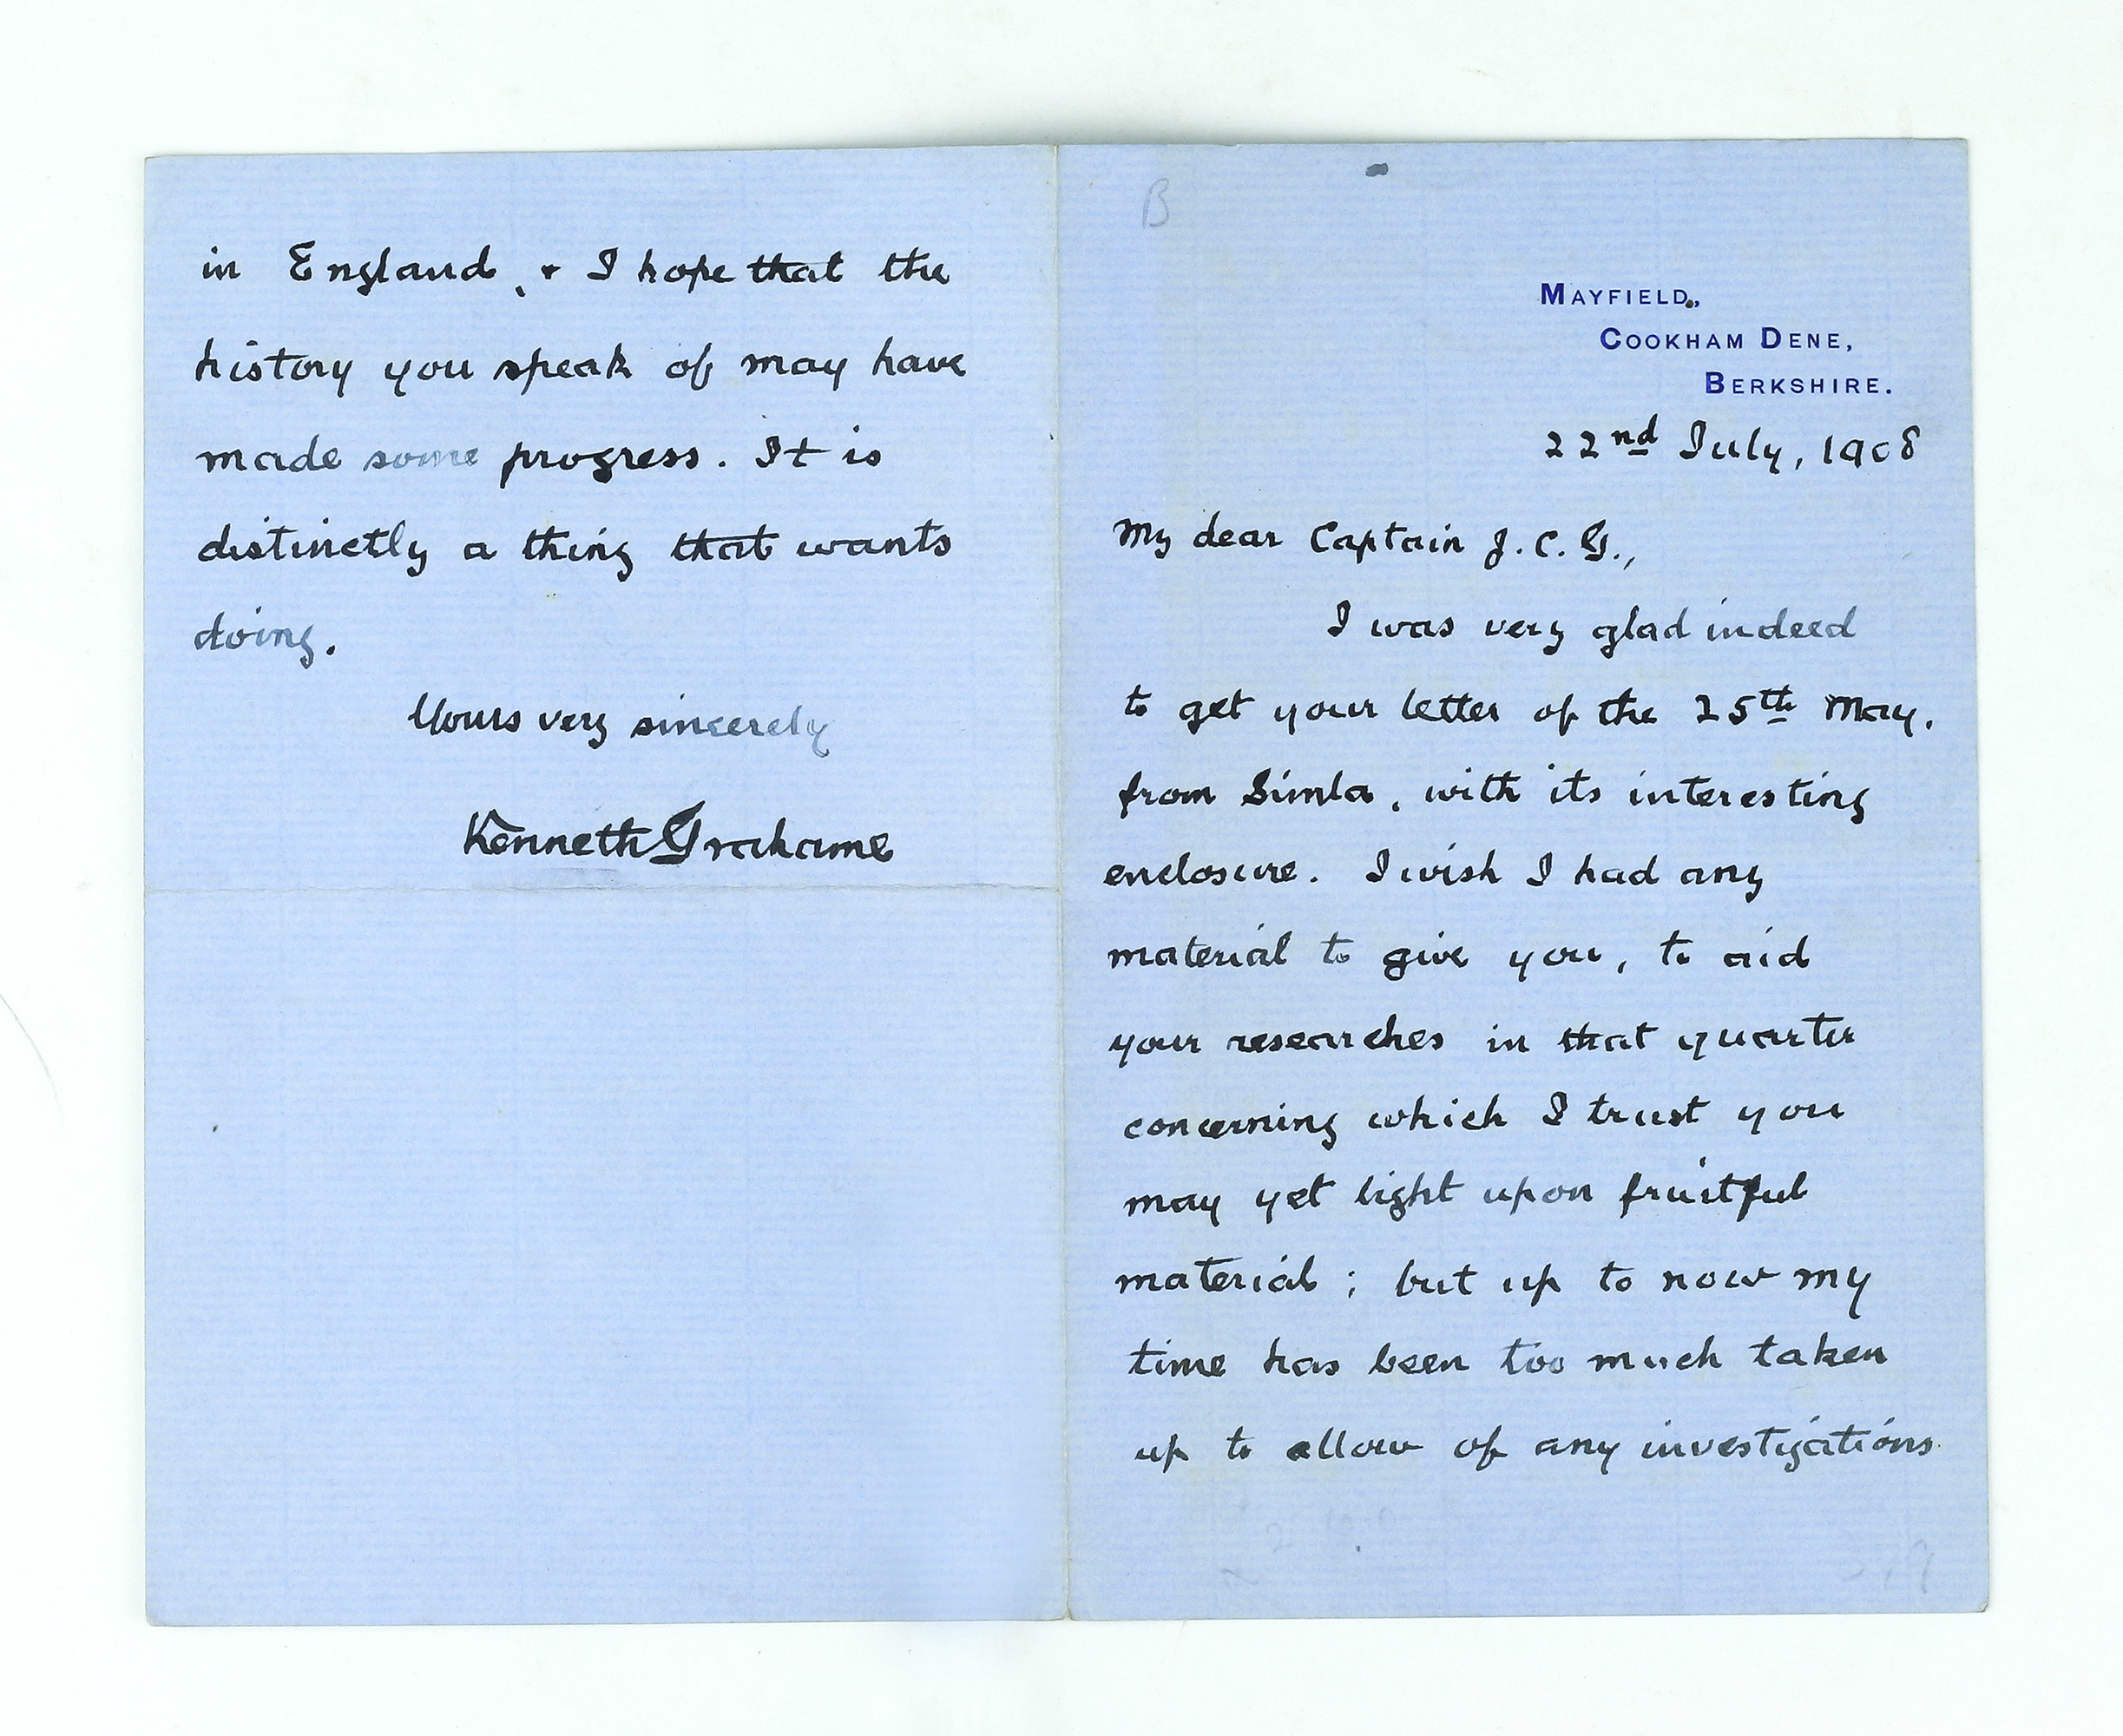 B
MAYFIELD,
COOKHAM DENE,
BERKSHIRE.
22nd July, 1908
My dear Captain J. C. G.,
I was very glad indeed
to get your letter of the 25th May.
from Simla, with its interesting
enclosure. I wish I had any
material to give you, to aid
your researches in that quarter
concerning which I trust you
may yet light upon fruitful
material; but up to now my
time has been too much taken
up to allow of any investigations
in England, & I hope that the
history you speak of may have
made some progress. It is
distinctly a thing that wants
doing.
Yours very sincerely
Kenneth Grahame